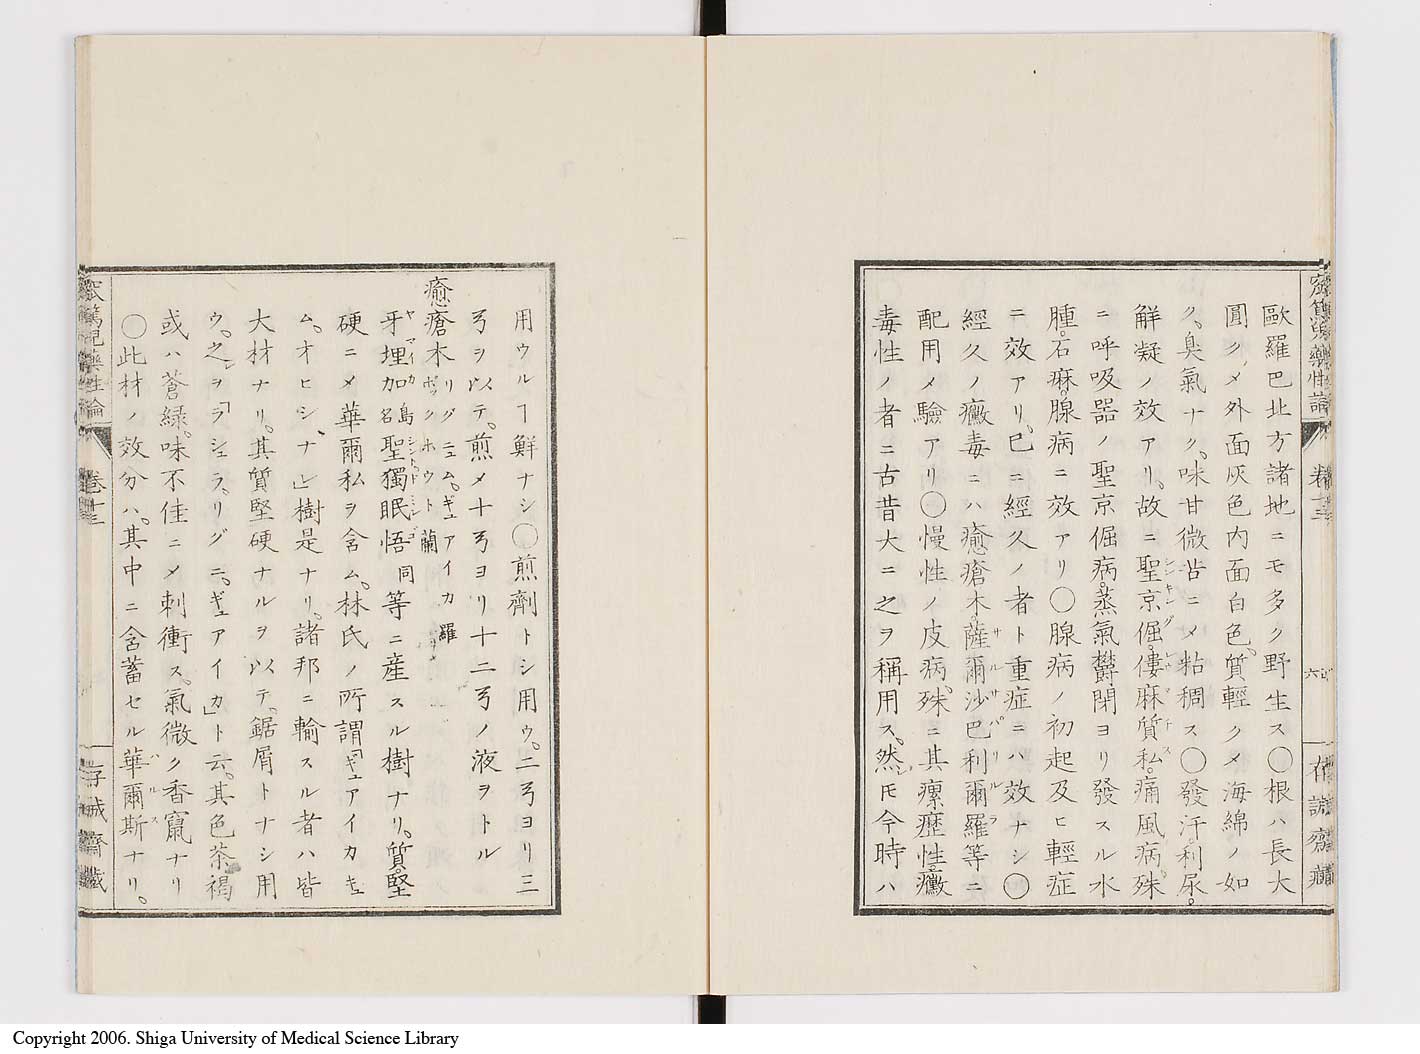 歐羅巴北方諸地ニモ多ク野生ス〇根ハ長大
圓クメ外面灰色内面白色。質輕クメ海綿ノ如
ク。臭氣ナク。味甘微苦ニメ粘稠ス〇發汗。利尿。
解凝ノ效アリ。故ニ聖京倔。僂麻質私。痛風病殊
ニ呼吸器ノ聖京倔病。蒸氣欝閉ヨリ發スル水
腫。石痳。腺病ニ效アリ〇腺病ノ初起及ヒ輕症
ニ效アリ。已ニ經久ノ者ト重症ニハ效ナシ〇
經久ノ黴毒ニハ癒瘡木。薩爾沙巴利爾羅等ニ
配用メ驗アリ〇慢性ノ皮病。殊ニ其瘰癧性黴
毒性ノ者ニ古昔大ニ之ヲ稱用ス。然𪜈今時ハ
用ウルヿ鮮ナシ〇煎劑トシ用ウ。二弓ヨリ三
弓ヲ以テ。煎メ十弓ヨリ十二弓ノ液ヲトル
癒瘡木 リグニュム。ギュアイカ 羅 ポックホウト 蘭
牙埋加島名聖獨眠悟同等ニ産スル樹ナリ。質堅
硬ニメ華爾私ヲ含ム。林氏ノ所謂「ギュアイカキュ
ム。オヒシナレ」樹是ナリ。諸邦ニ輸スル者ハ皆
大材ナリ。其質堅硬ナルヲ以テ。鋸屑トナシ用
ウ。之ヲ「ラシュラ。リグニ。ギュアイカ」ト云。其色茶褐
或ハ蒼緑。味不佳ニメ刺衝ス。氣微ク香竄ナリ
〇此材ノ效分ハ。其中ニ含蓄セル華爾斯ナリ。
卷十三
Copyright 2006. Shiga University of Medical Science Library